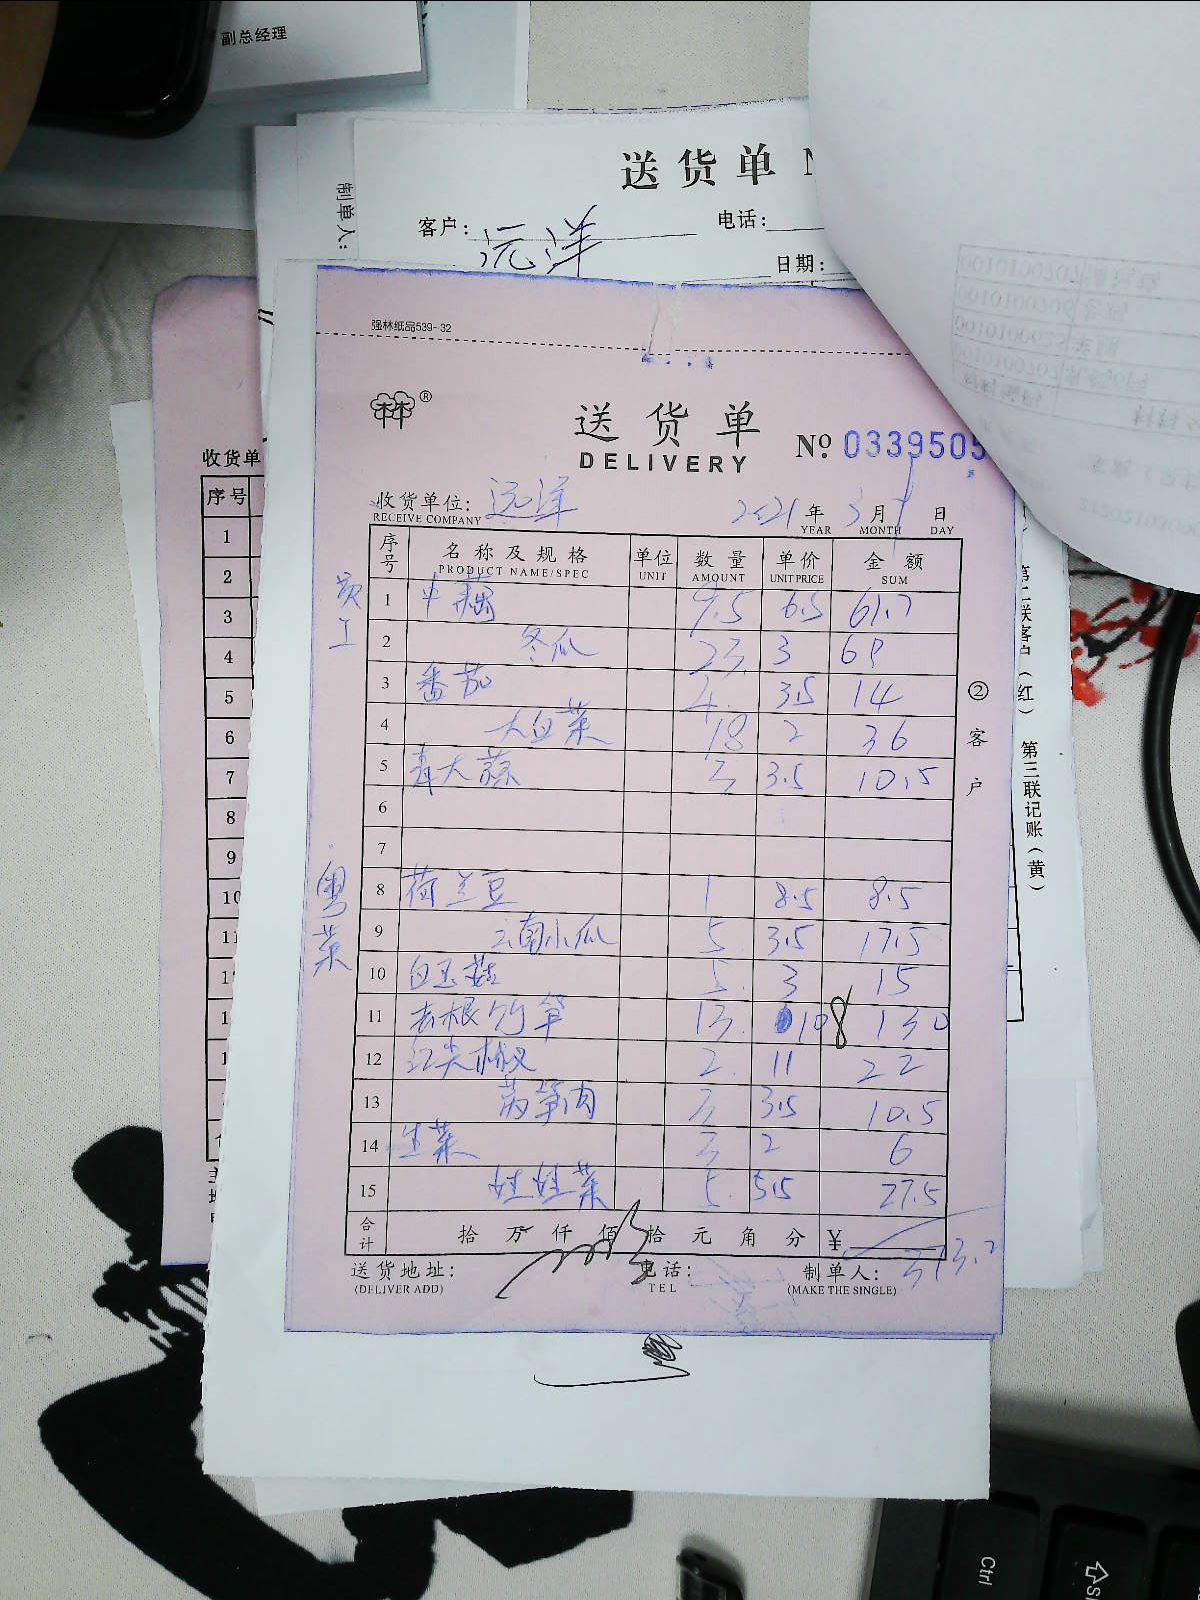 副总经理
送货单
制单人:
客户: 远洋 电话:
日期:
强林纸品539-32
林林®
送货单
DELIVERY
№ 0339505
收货单位: 远洋 2021年3月1日
RECEIVE COMPANY YEAR MONTH DAY
序号 名称及规格 单位 数量 单价 金额
PRODUCT NAME/SPEC UNIT AMOUNT UNIT PRICE SUM
员工
1 9.5 6.5 61.7
2 冬瓜 23 3 69
3 番茄 4 3.5 14
4 大白菜 18 2 36
5 青大蒜 3 3.5 10.5
6
7
粤菜
8 荷兰豆 1 8.5 8.5
9 云南小瓜 5 3.5 17.5
10 白玉菇 5 3 15
11 去根竹笋 13 10 8 130
12 红尖椒 2 11 22
13 莴笋肉 3 3.5 10.5
14 生菜 3 2 6
15 娃娃菜 5 5.5 27.5
合计 拾万仟佰拾元角分 ¥
送货地址: 电话: 制单人:
(DELIVER ADD) TEL (MAKE THE SINGLE)
②客户
收货单
序号
1
2
3
4
5
6
7
8
9
10
联客户(红) 第三联记账(黄)
Ctrl